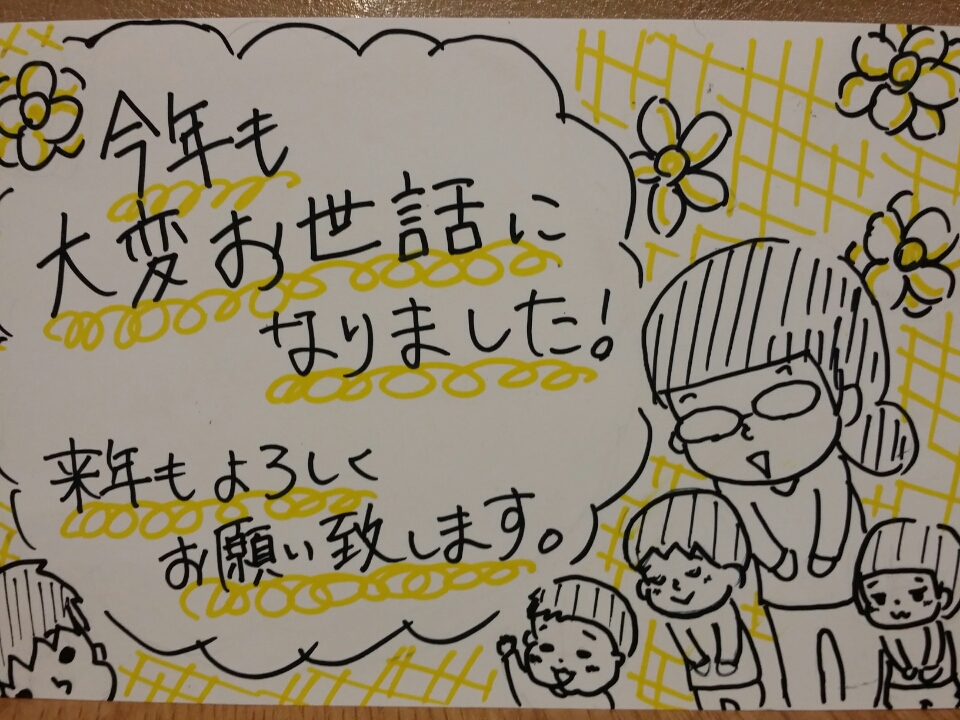 今年も
大変お世話に
なりました!
来年もよろしく
お願い致します。